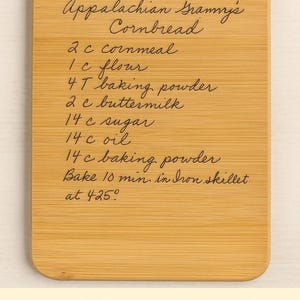 Appalachian Granny's
Cornbread
2 c cornmeal
1 c flour
4 T baking powder
2 c buttermilk
1/4 c sugar
1/4 c oil
1/4 c baking powder
Bake 10 min. in Iron skillet
at 425°